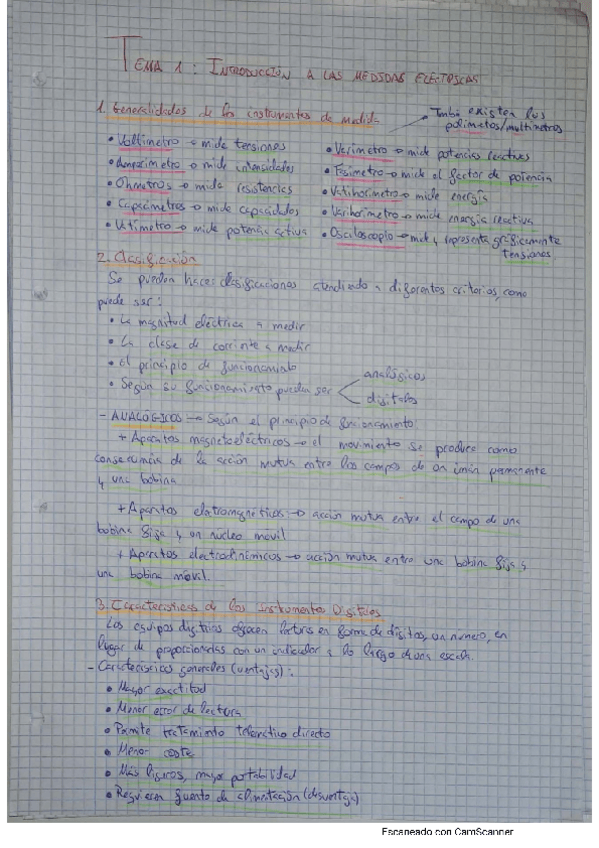 TEMA 1: INTRODUCCIÓN A LAS MEDIDAS ELÉCTRICAS
1. Generalidades de los instrumentos de medida
También existen los
polímetros/multímetros
• Voltímetro → mide tensiones
• Amperímetro → mide intensidades
• Ohmetros → mide resistencias
• Capacímetros → mide capacidades
• Vatímetro → mide potencia activa
• Varímetro → mide potencias reactivas
• Fasímetro → mide el factor de potencia
• Vatihorímetro → mide energía
• Varihorímetro → mide energía reactiva
• Osciloscopio → mide y representa gráficamente
tensiones
2. Clasificación
Se pueden hacer clasificaciones atendiendo a diferentes criterios, como
puede ser:
• La magnitud eléctrica a medir
• La clase de corriente a medir
• El principio de funcionamiento
• Según su funcionamiento pueden ser
analógicos
digitales
- ANALÓGICOS → Según el principio de funcionamiento
+ Aparatos magnetoeléctricos → el movimiento se produce como
consecuencia de la acción mutua entre los campos de un imán permanente
y una bobina
+ Aparatos electromagnéticos → acción mutua entre el campo de una
bobina fija y un núcleo móvil
+ Aparatos electrodinámicos → acción mutua entre una bobina fija y
una bobina móvil.
3. Características de los Instrumentos Digitales
Los equipos digitales ofrecen lecturas en forma de dígitos, un número, en
lugar de proporcionarlas con un indicador a lo largo de una escala.
- Características generales (ventajas):
• Mayor exactitud
• Menor error de lectura
• Permite tratamiento informático directo
• Menor coste
• Más ligeros, mayor portabilidad
• Requieren fuente de alimentación (desventaja)
Escaneado con CamScanner